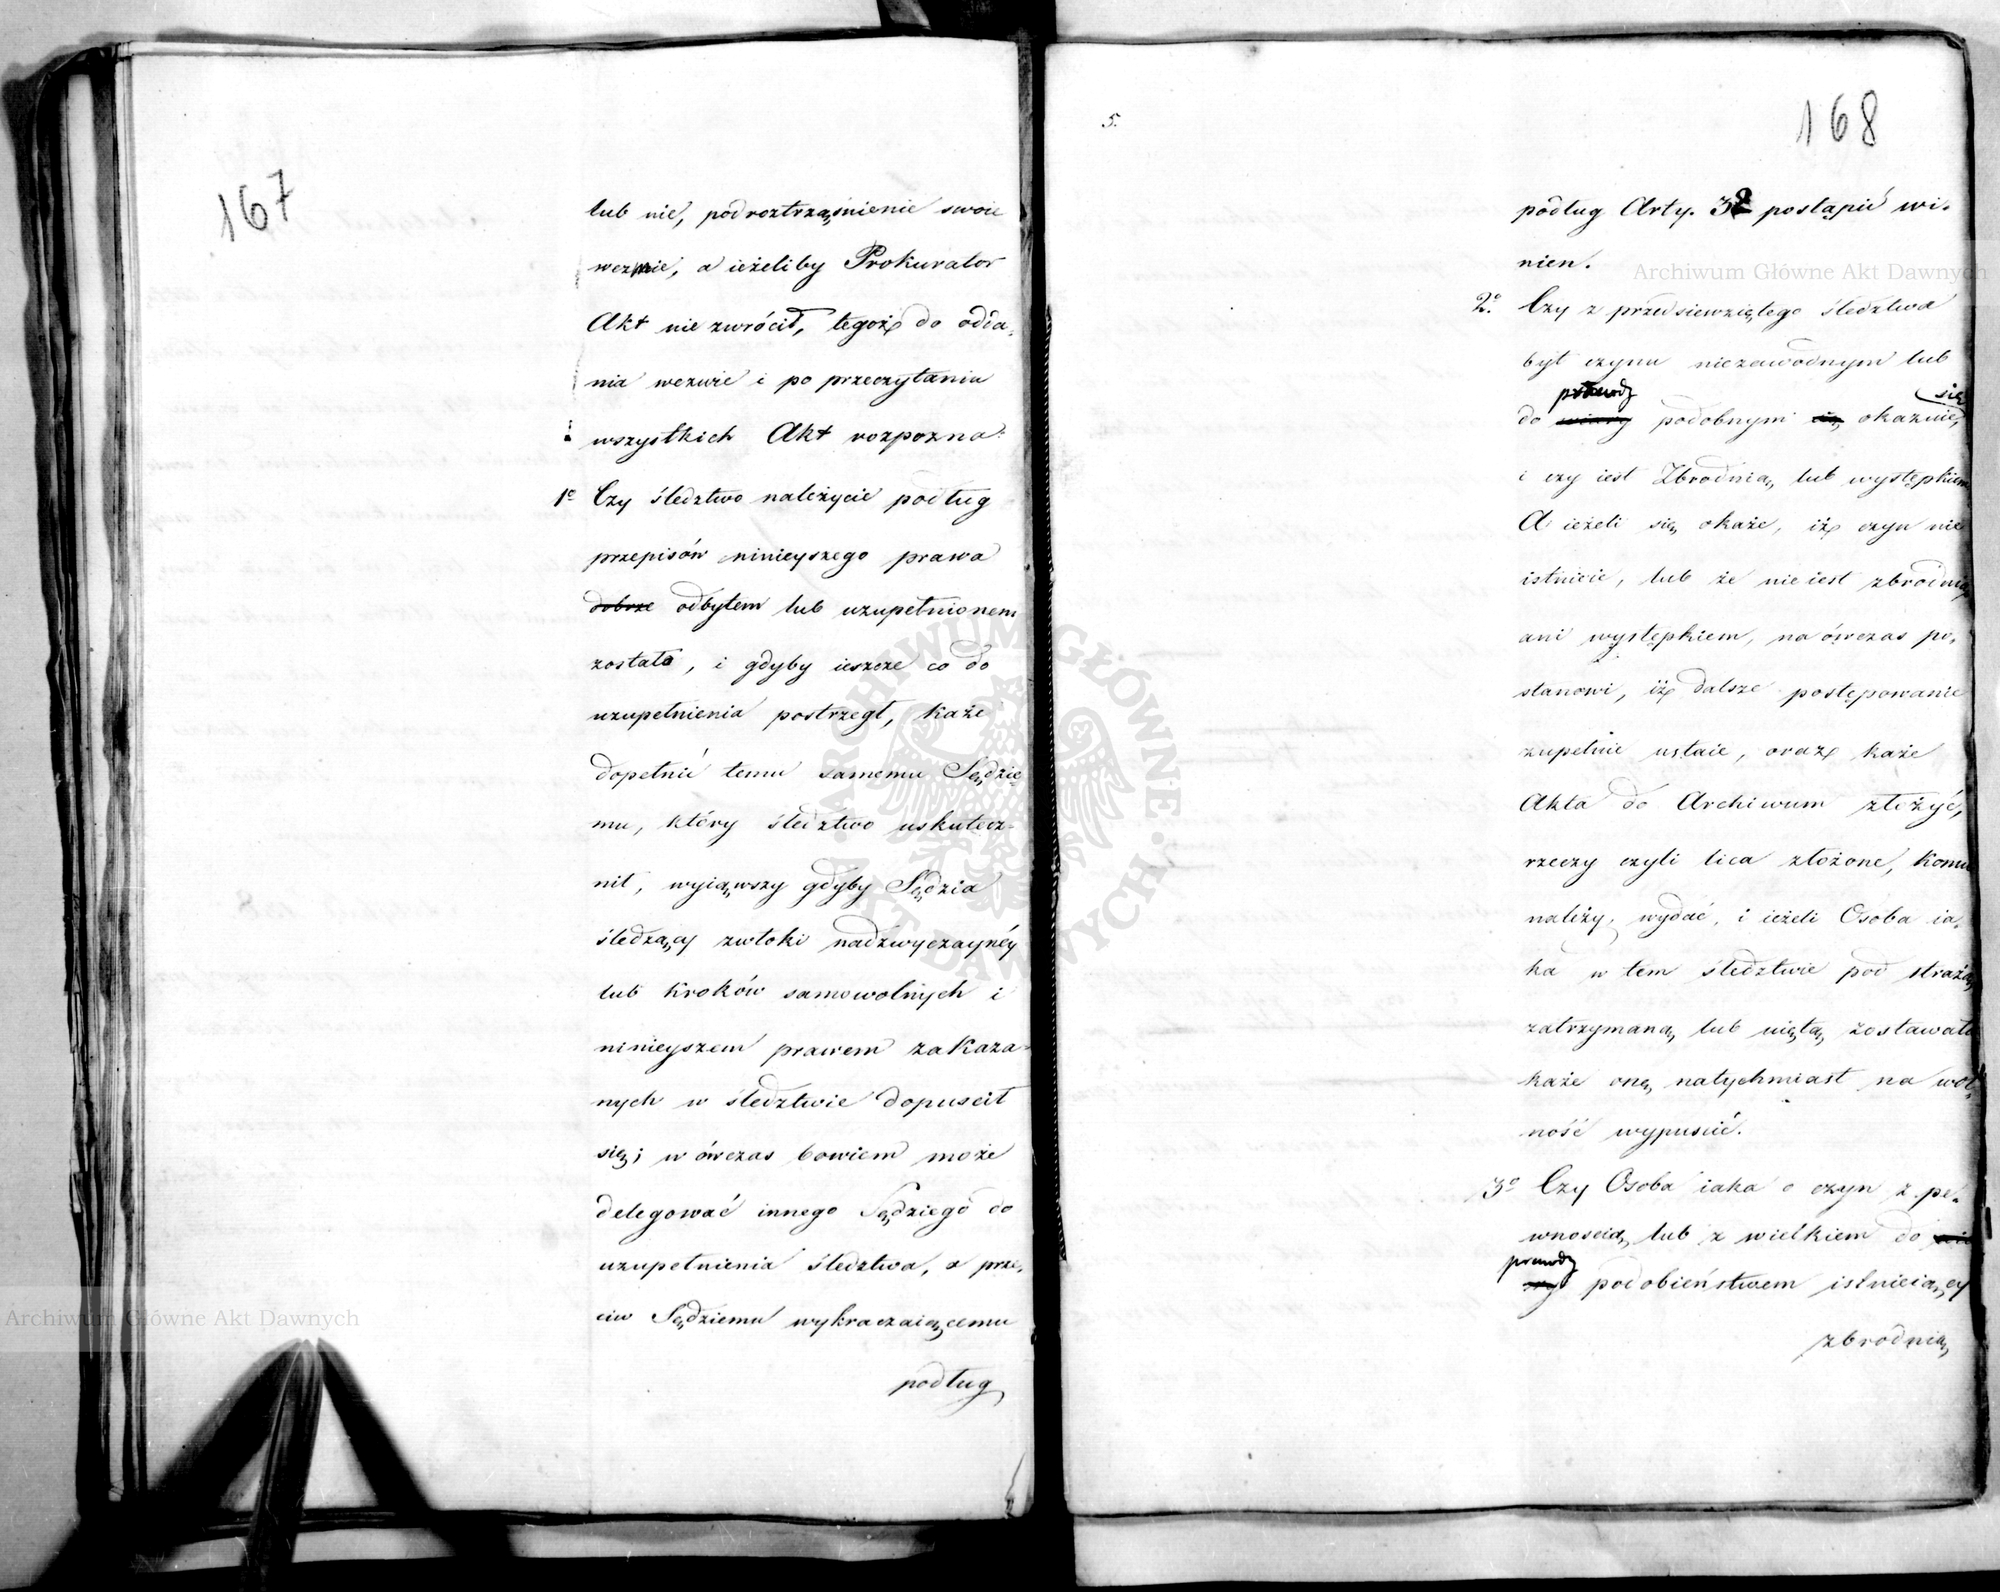 167
lub nie, pod roztrząśnienie swoie
wezmie, a ieżeliby Prokurator
Akt nie zwrócił, tegoż do odda-
nia wezwie i po przeczytaniu
wszystkich Akt rozpozna:
1º Czy śledztwo należycie podług
przepisów ninieyszego prawa
dobrze odbytem lub uzupełnionem
zostało, i gdyby ieszcze co do
uzupełnienia postrzegł, każe
dopełnić temu samemu Sędzie-
mu, który śledztwo uskutecz-
nił, wyiąwszy gdyby Sędzia
śledzący zwłoki nadzwyczaynéy
lub kroków samowolnych i
ninieyszem prawem zakaza-
nych w śledztwie dopuscił
się; w ówczas bowiem może
delegować innego Sędziego do
uzupełnienia śledztwa, a prze-
ciw Sędziemu wykraczaiącemu
podług
5.
168
podług Arty. 32 postąpić wi-
nien.
2º. Czy z przedsiewziętego śledztwa
byt czynu niezawodnym lub
prawdy się
do wiary podobnym się okazuie,
i czy iest Zbrodnią, lub występkiem
A ieżeli się okaże, iż czyn nie
istnieie, lub że nie iest zbrodnią
ani występkiem, na ówczas po-
stanowi, iż dalsze postępowanie
zupełnie ustaie, oraz każe
Akta do Archiwum złożyć,
rzeczy czyli lica złożone, komu
należy, wydać, i ieżeli Osoba ia-
ka w tem śledztwie pod strażą
zatrzymaną lub uiętą zostawała
każe onę natychmiast na wol-
ność wypuscić.
3º Czy Osoba iaka o czyn z pe-
wnoscią lub z wielkiem do wia
prawdy
ry podobieństwem istnieiący
zbrodnią
Archiwum Główne Akt Dawnych
Archiwum Główne Akt Dawnych
ARCHIWUM GŁÓWNE AKT DAWNYCH